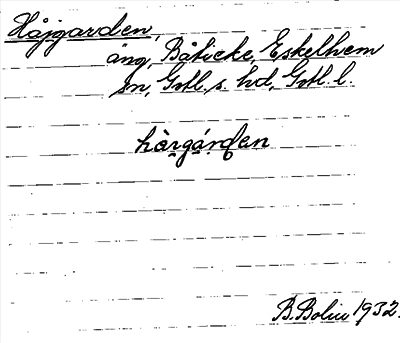 Håjgarden,
äng, Båticke, Eskelhem
sn, Gotl. s. hd, Gotl. l.
hàrgá̤rden
B. Bolin 1932.